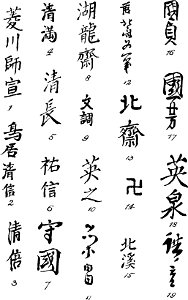 菱川師宣
1
鳥居清信
2
清倍
3
清滿
4
清長
5
祐信
6
守國
7
湖龍齋
8
文調
9
英之
10
11
筆
12
北齋
13
卍
14
北溪
15
國貞
16
國芳
17
英泉
18
廣重
19